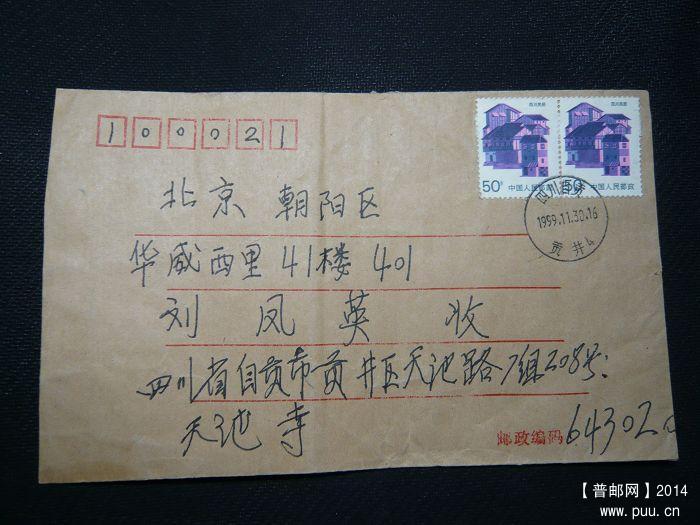 四川民居 四川民居
50分 中国人民邮政 50分 中国人民邮政
100021
四川自贡
1999.11.30.16
贡井4
北京 朝阳区
华威西里41楼401
刘凤英 收
四川省自贡市贡井区天池路7组208号:
天池寺
邮政编码 643020
【普邮网】2014
www.puu.cn